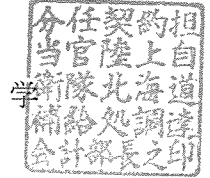 今任契約担
当官陸上自
衛隊北海道
補給処調達
会計部長之印
学